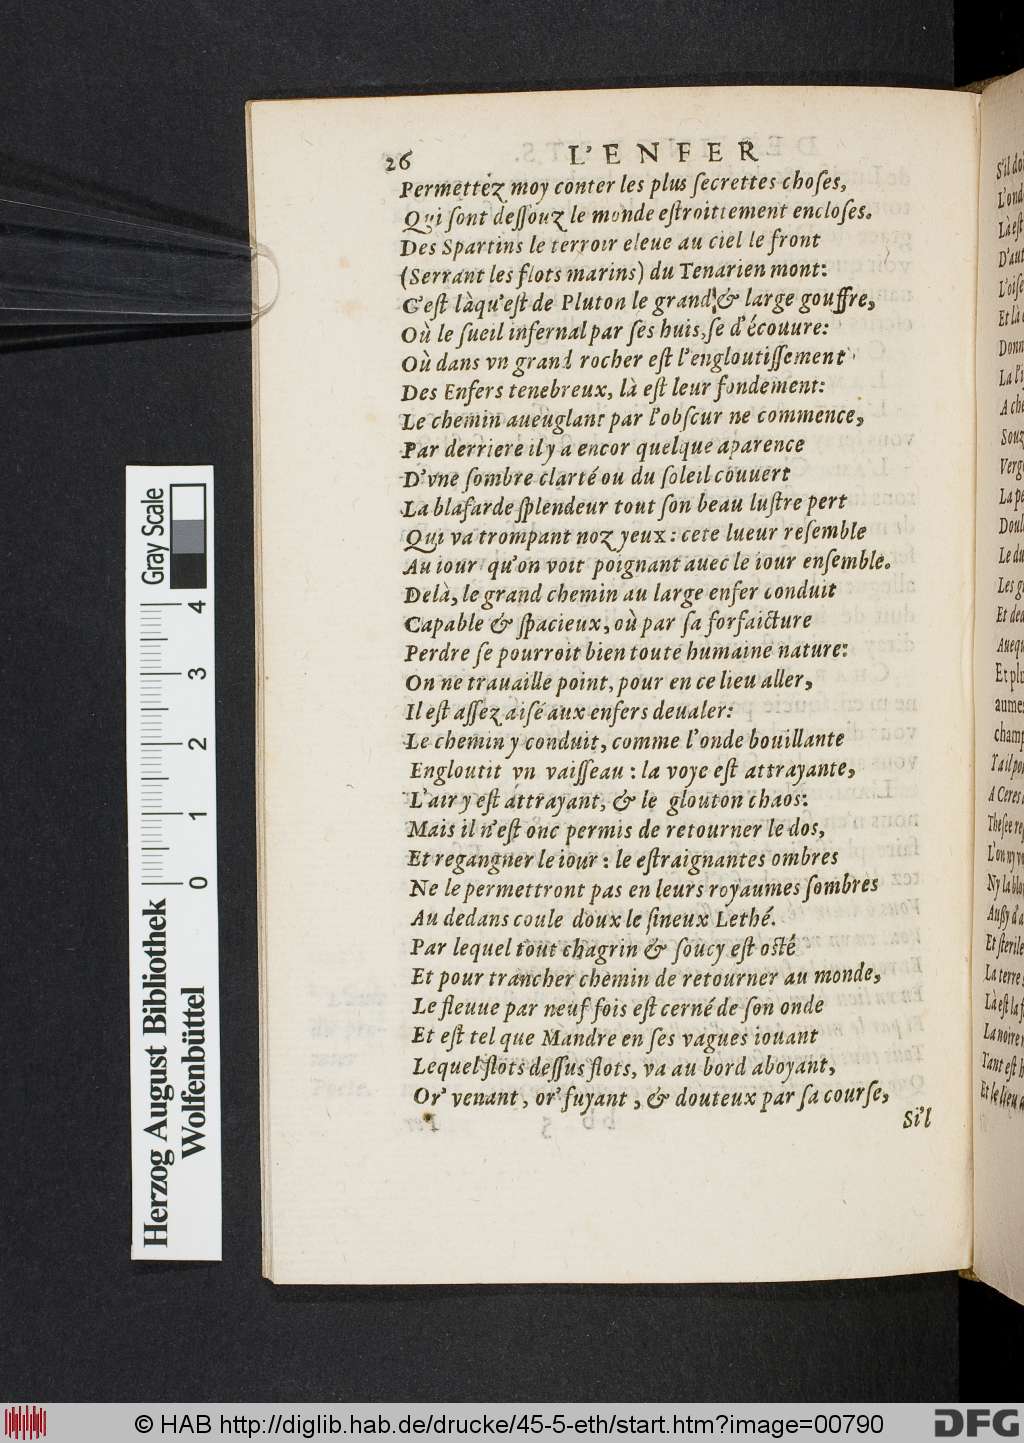 26 L'ENFER
Permettéz moy conter les plus ſecrettes choſes,
Qui ſont deſſouz le monde eſtroittement encloſes.
Des Spartins le terroir eleue au ciel le front
(Serrant les flots marins) du Tenarien mont:
C'eſt làqu'eſt de Pluton le grand & large gouffre,
Où le ſueil infernal par ſes huis, ſe d'écouure:
Où dans vn grand rocher eſt l'engloutiſſement
Des Enfers tenebreux, là eſt leur fondement:
Le chemin aueuglant par l'obſcur ne commence,
Par derriere il y a encor quelque aparence
D'vne ſombre clarté ou du ſoleil couuert
La blafarde ſplendeur tout ſon beau luſtre pert
Qui va trompant noz yeux: cete lueur reſemble
Au iour qu'on voit poignant auec le iour enſemble.
Delà, le grand chemin au large enfer conduit
Capable & ſpacieux, où par ſa forfaicture
Perdre ſe pourroit bien toute humaine nature:
On ne trauaille point, pour en ce lieu aller,
Il eſt aſſez aiſé aux enfers deualer:
Le chemin y conduit, comme l'onde bouillante
Engloutit vn vaiſſeau: la voye eſt attrayante,
L'air y eſt attrayant, & le glouton chaos:
Mais il n'eſt onc permis de retourner le dos,
Et regangner le iour: le eſtraignantes ombres
Ne le permettront pas en leurs royaumes ſombres
Au dedans coule doux le ſineux Lethé.
Par lequel tout chagrin & ſoucy eſt oſté
Et pour trancher chemin de retourner au monde,
Le fleuue par neuf fois eſt cerné de ſon onde
Et eſt tel que Mandre en ſes vagues iouant
Lequel flots deſſus flots, va au bord aboyant,
Or' venant, or' fuyant, & douteux par ſa courſe,
Si'l
Gray Scale
0 1 2 3 4
Herzog August Bibliothek
Wolfenbüttel
© HAB http://diglib.hab.de/drucke/45-5-eth/start.htm?image=00790
DFG